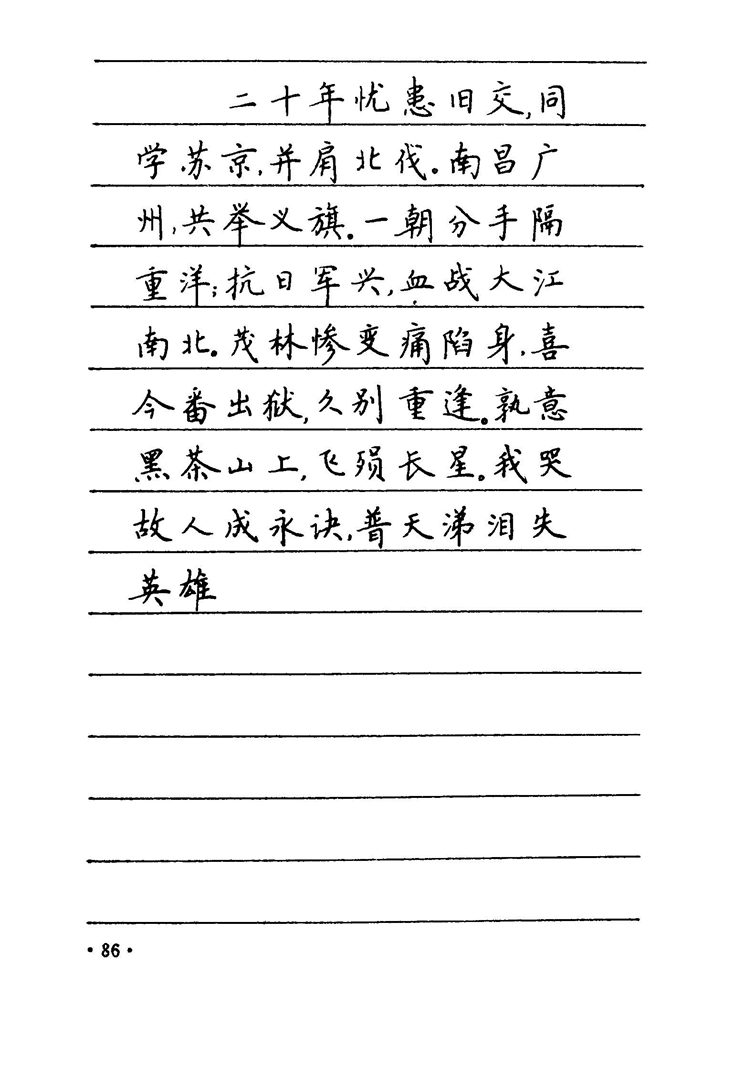 二十年忧患旧交,同
学苏京,并肩北伐。南昌广
州,共举义旗。一朝分手隔
重洋;抗日军兴,血战大江
南北。茂林惨变痛陷身,喜
今番出狱,久别重逢。孰意
黑茶山上,飞殒长星。我哭
故人成永诀,普天涕泪失
英雄
·86·